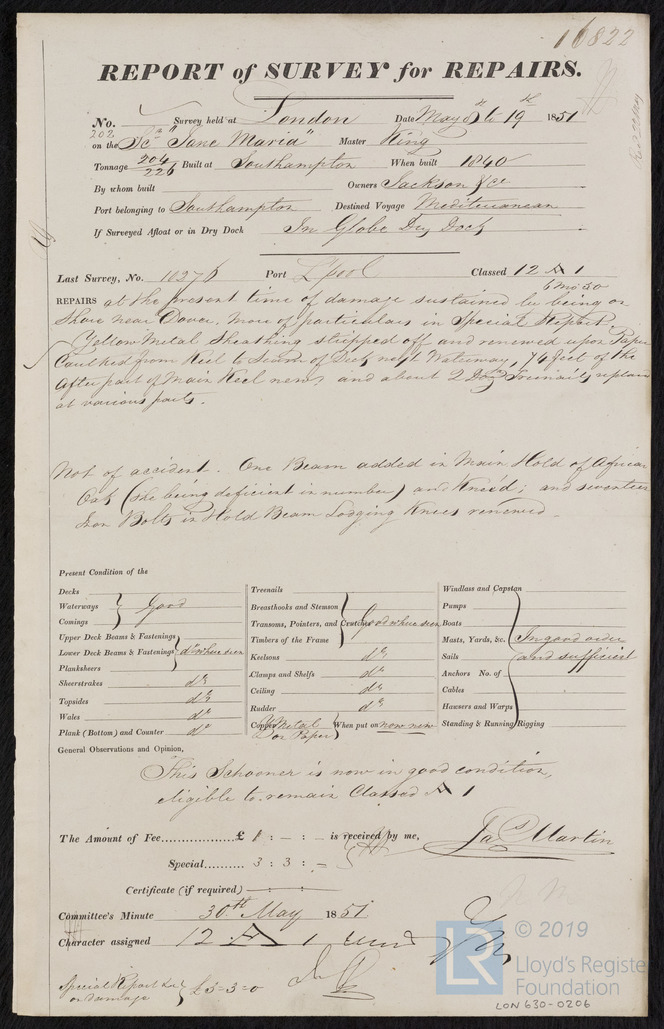 16822
REPORT of SURVEY for REPAIRS.
No. Survey held at London Date May 8th to 19th 1851
202 on the Scr "Jane Maria" Master King
Tonnage 204/226 Built at Southampton When built 1840
By whom built Owners Jackson & Co
Port belonging to Southampton Destined Voyage Mediterranean
If Surveyed Afloat or in Dry Dock In Globe Dry Dock
Last Survey, No. 10376 Port Lpool Classed 12 A 1
6 Mo 50
REPAIRS at the present time of damage sustained by being on
Shore near Dover. More of particulars in Special Report
Yellow Metal Sheathing stripped off and renewed upon Paper
Caulked from Keel to Seam of Deck next Waterway, 74 feet of the
after part of Main Keel new and about 2 Doz Treenails replaced
at various parts.
Not of accident. One Beam added in Main Hold of African
Oak (she being deficient in number) and Kneed; and seventeen
Iron Bolts in Hold Beam Lodging Knees renewed.
Present Condition of the
Decks
Waterways Good
Comings
Upper Deck Beams & Fastenings
Lower Deck Beams & Fastenings do where seen
Planksheers
Sheerstrakes do
Topsides do
Wales do
Plank (Bottom) and Counter do
Treenails
Breasthooks and Stemson
Transoms, Pointers, and Crutches Good where seen
Timbers of the Frame
Keelsons do
Clamps and Shelfs do
Ceiling do
Rudder do
Copper Y Metal When put on now new
on Paper
Windlass and Capstan
Pumps
Boats
Masts, Yards, &c. In good order
Sails and sufficient
Anchors No. of
Cables
Hawsers and Warps
Standing & Running Rigging
General Observations and Opinion,
This Schooner is now in good condition,
eligible to remain Classed A 1
The Amount of Fee £ 1 : - : - is received by me,
Jas Martin
Special 3 : 3 : -
Certificate (if required)
Committee's Minute 30th May 1851
Character assigned 12 A 1
Special Report &c
on damage £5-3-0
LR
© 2019
Lloyd's Register
Foundation
LON630-0206